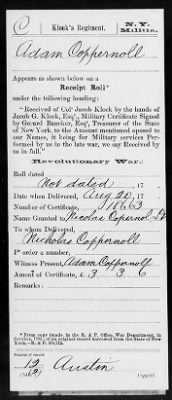 C Klock's Regiment. N.Y. Militia.
Adam Coppernoll
Appears as shown below on a
Receipt Roll*
under the following heading:
"Received of Col' Jacob Klock by the hands of
Jacob G. Klock, Esq', Military Certificate Signed
by Gerard Bancker, Esq', Treasurer of the State
of New York, to the Amount mentioned opposed to
our Names, it being for Military services Per-
formed by us in the late war, we say Received by
us in full."
Revolutionary War.
Roll dated
Not dated, 17 .
Date when Delivered, Aug 20, 17 .
Number of Certificate, 18663
Name Granted to Nicolas Copernol
To whom Delivered,
Nicholas Coppernoll
P' order a number,
Witness Present, Adam Coppernoll
Amount of Certificate, £ 3 3 6
Remarks:
Number of record:
Austin
Copyist.